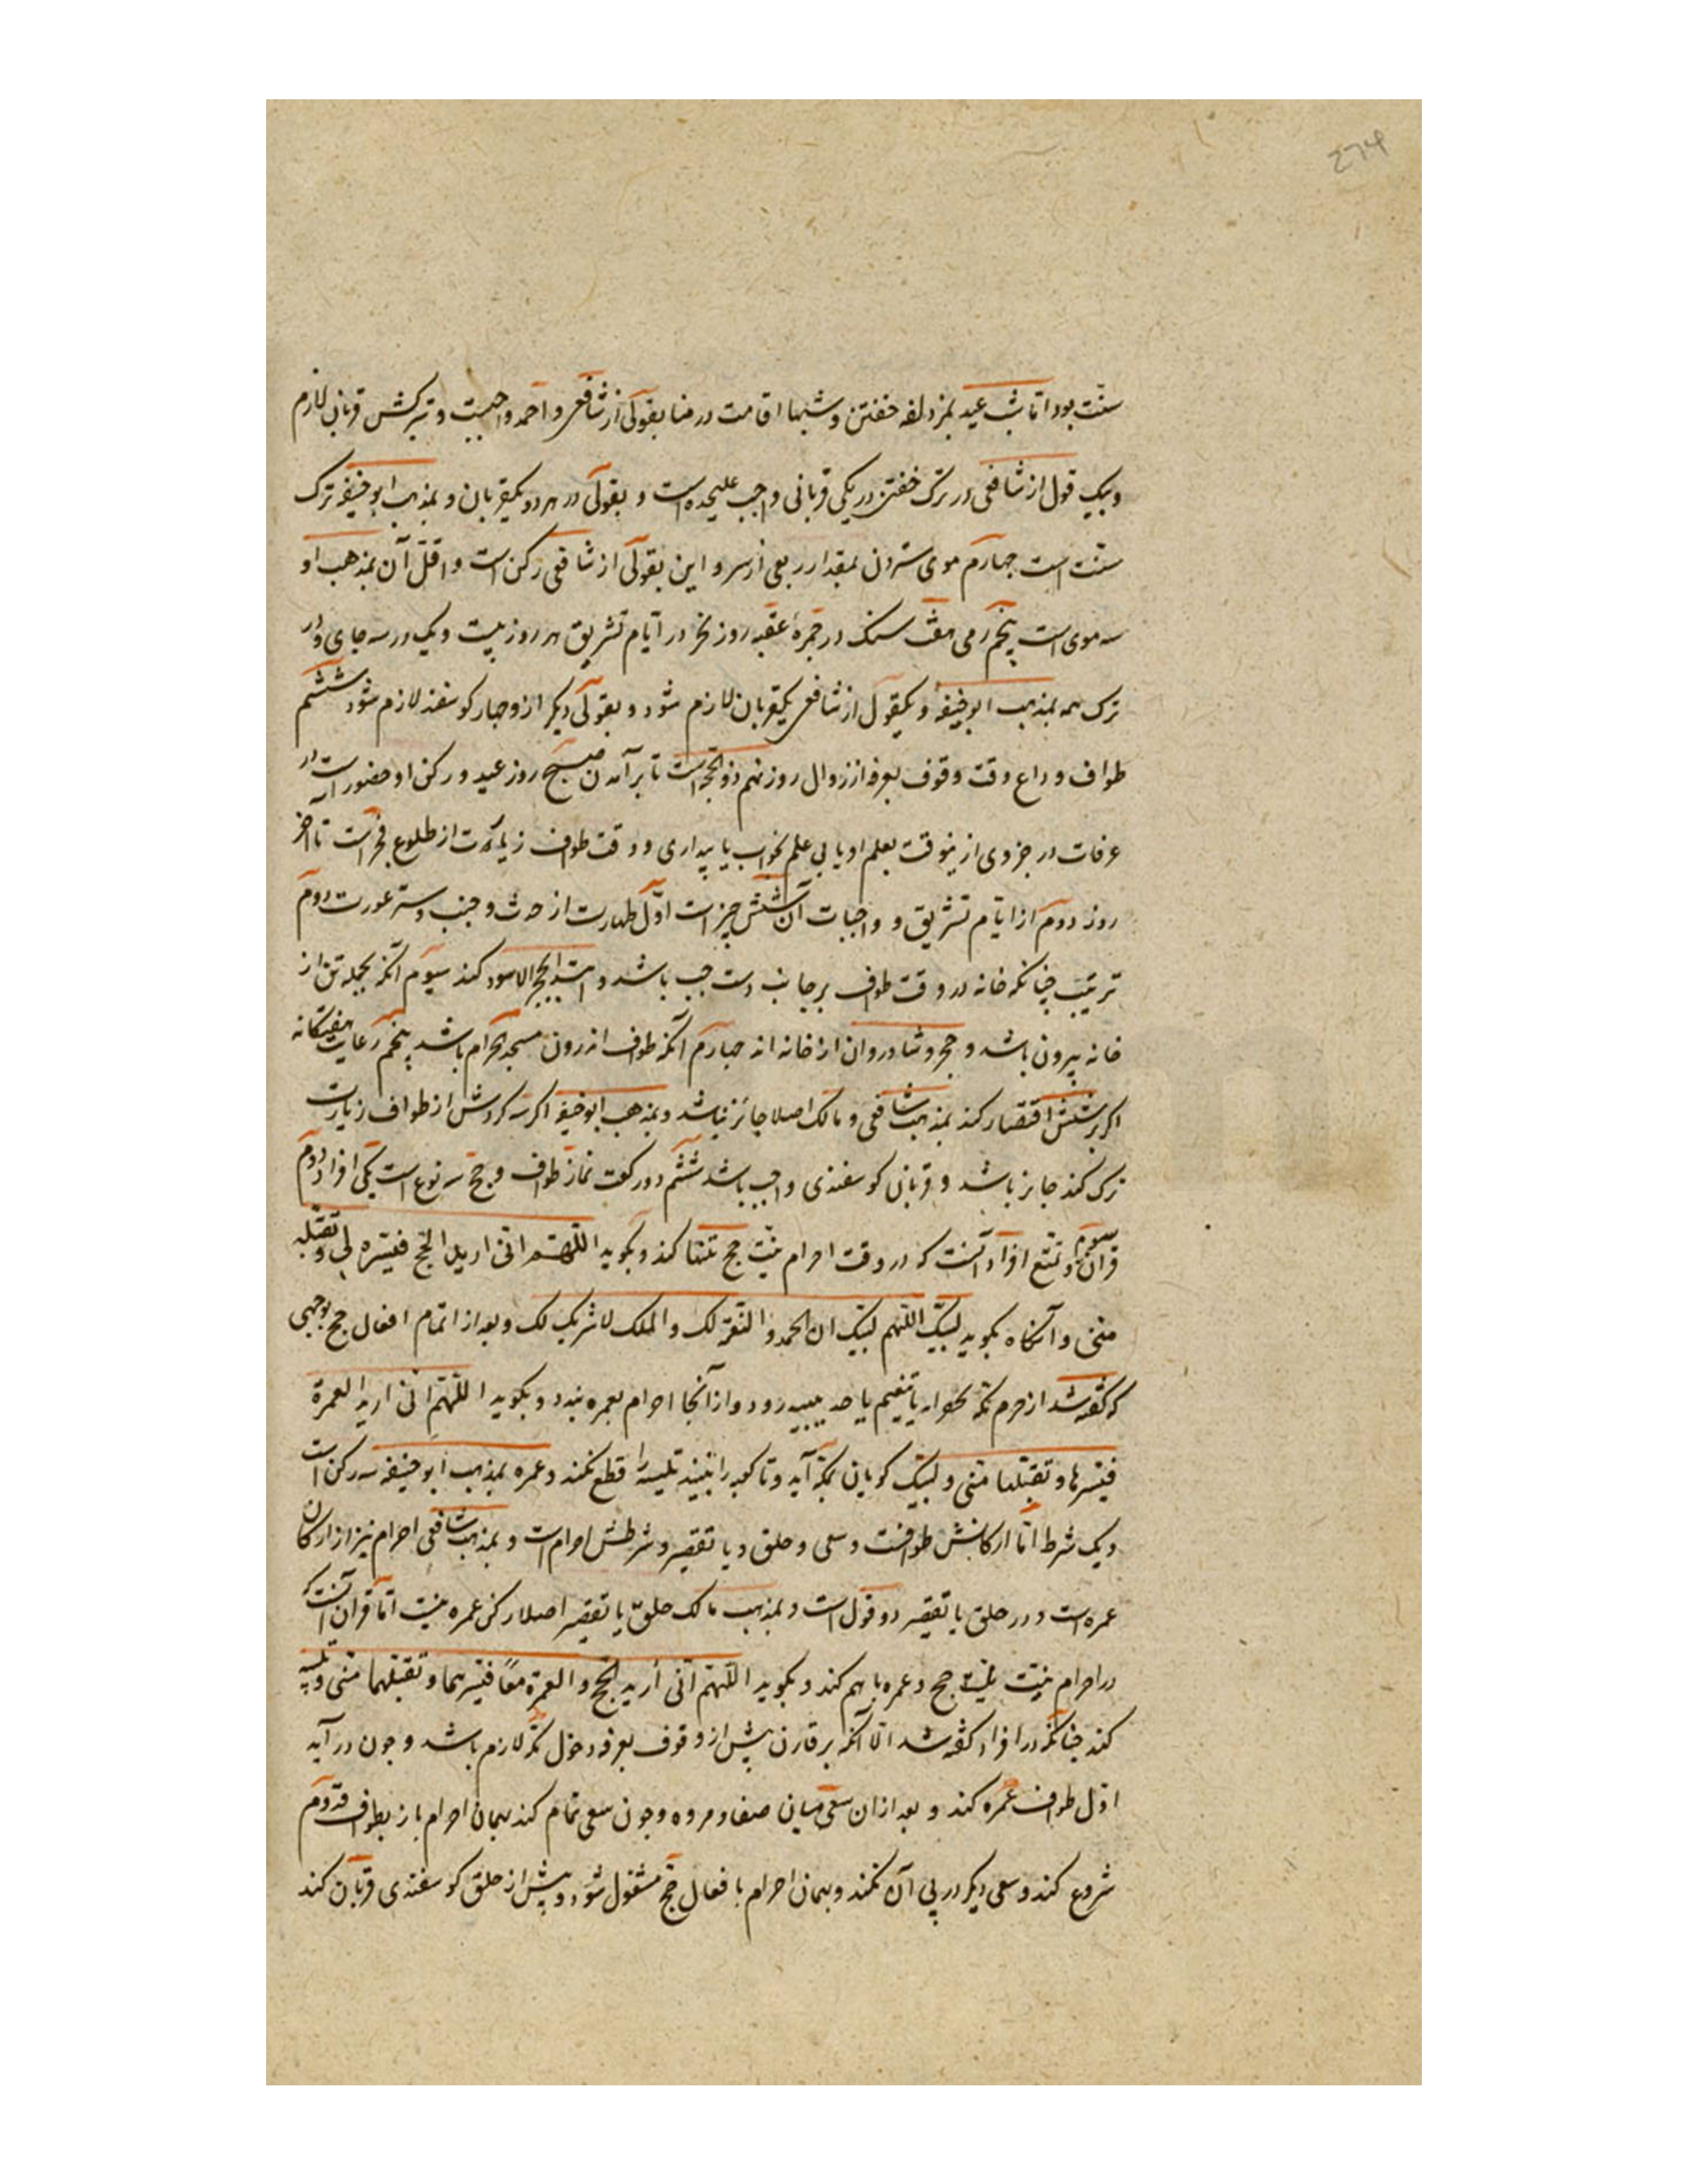 274
سنّت بود اما شب عید بمزدلفه خفتن و شبها اقامت در منا بقولی از شافعی و احمد واجبست و بترکش قربان لازم
و بیک قول از شافعی در ترک خفتن در یکی قربانی واجب علیحده است و بقولی در هر دو یکقربان و بمذهب ابوحنیفه ترک
سنّت است چهارم موی ستردن بمقدار ربعی از سر و این بقولی از شافعی رکن است و اقلّ آن بمذهب او
سه موی است پنجم رمی هفت سنک در جمرهٔ عقبه روز نحر و در ایّام تشریق هر روز بیست و یک در سه جای و در
ترک همه بمذهب ابوحنیفه و یکقول از شافعی یکقربان لازم شود و بقولی دیکر ازو چهار کوسفند لازم شود ششم
طواف وداع وقت وقوف بعرفه از زوال روز نهم ذوالحجه است تا برآمدن صبح روز عید و رکن او حضور است در
عرفات در جزوی ازینوقت بعلم او یا بی علم بخواب یا بیداری و وقت طواف زیارت از طلوع فجر است تا آخر
روز دوم از ایّام تشریق و واجبات آن شش چیز است اوّل طهارت از حدث و خبث و ستر عورت دوم
ترتیب چنانکه خانه در وقت طواف برجانب دست چپ باشد و ابتدا بحجر الاسود کند سیوم آنکه بجمله تن از
خانه بیرون باشد و حجر و شادروان از خانه اند چهارم آنکه طواف اندرون مسجد الحرام باشد پنجم رعایت هفتکانه
اکر بر شش اقتصار کند بمذهب شافعی و مالک اصلا جائز نباشد و بمذهب ابوحنیفه اکر سه کردش از طواف زیارت
ترک کند جایز باشد و قربان کوسفندی واجب باشد ششم دو رکعت نماز طواف و حجّ سه نوع است یکی افراد دوم
قران سیوم و تمتع افراد آنست که در وقت احرام نیّت حج تنها کند و بکوید اللّهم انی ارید الحجّ فیسّره لی و تقبّله
منّی و آنکاه بکوید لبّیک اللّهم لبّیک ان الحمد و النعمة لک و الملک لا شریک لک و بعد از اتمام افعال حج بوجهی
که کفته شد از حرم مکّه بجعرانه یا تنعیم یا حدیبیه رود و از آنجا احرام بعمره بندد و بکوید اللّهم انّی ارید العمرة
فیسّرها و تقبّلها منّی و لبیک کویان بمکّه آید و تا کعبه را نبیند تلبیه را قطع نکند و عمره بمذهب ابوحنیفه سه رکن است
و یک شرط امّا ارکانش طوافست و سعی و حلق و یا تقصیر و شرطش احرام است و بمذهب شافعی احرام نیز از ارکان
عمره است و در حلق یا تقصیر دو قول است و بمذهب مالک حلق یا تقصیر اصلا رکن عمره نیست امّا قران آنست که
در احرام نیّت حج و عمره با هم کند و بکوید اللّهم انّی ارید الحجّ و العمرة معًا فیسّرهما و تقبّلهما منّی و تلبیه
کند چنانکه در افراد کفته شد الّا آنکه بر قارن پیش از وقوف بعرفه دخول مکّه لازم باشد و چون در آید
اوّل طواف عمره کند و بعد ازان سعی میان صفا و مروه و چون سعی تمام کند بهمان احرام باز بطواف قدوم
شروع کند و سعی دیکر در پی آن نکند و بهمان احرام بافعال حجّ مشغول شود و پیش از حلق کوسفندی قربان کند